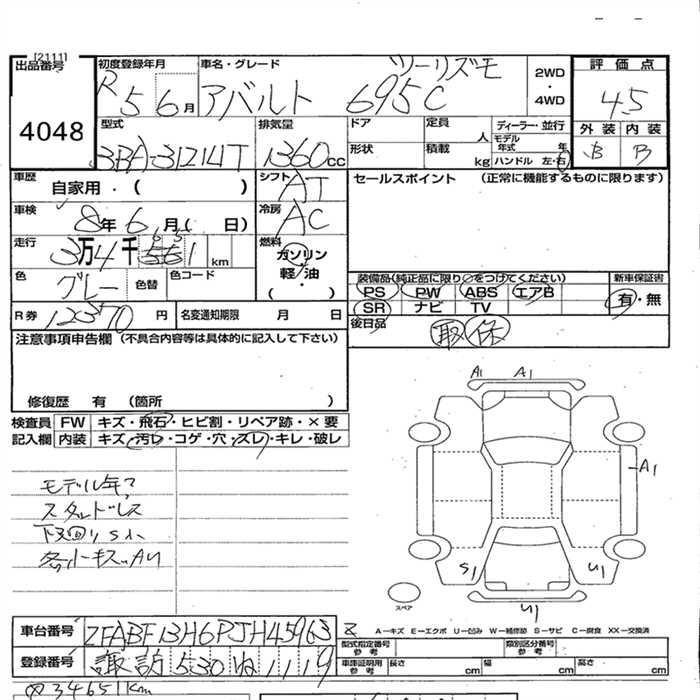 [2111]
出品番号
4048
初度登録年月
R5 6月
車名・グレード
アバルト 695C ツーリズモ
2WD
・
4WD
評価点
4.5
外装 内装
B B
型式
3BA-31214T
排気量
1360cc
ドア
形状
定員 人
積載 kg
ディーラー・並行
モデル年式 年
ハンドル 左・右
車歴
自家用・( )
シフト AT
車検
8年6月( 日)
冷房 AC
走行
3万4千 561 km
65
燃料
ガソリン
軽・油
( ・ )
色
グレー
色替
色コード
R券 12370 円
名変通知期限 月 日
セールスポイント (正常に機能するものに限ります)
装備品(純正品に限り○をつけてください)
新車保証書
PS PW ABS エアB
有・無
SR ナビ TV
後日品
取 保
注意事項申告欄(不具合内容等は具体的に記入して下さい)
修復歴 有 (箇所 )
検査員 FW キズ・飛石・ヒビ割・リペア跡・×要
記入欄 内装 キズ・汚レ・コゲ・穴・ズレ・キレ・破レ
モデル年?
スタッドレス
下回りS小
各小キズ,,AU
A1 A1
A1
S1 U1
U1
スペア
車台番号 ZFABF13H6PJH45963
A-キズ E-エクボ U-凹み W-補修跡 S-サビ C-腐食 XX-交換済
登録番号 諏訪 530 ね 1119
型式指定番号
参考
類別区分番号
参考
車庫証明用
参考
長さ cm 幅 cm 高さ cm
34651km